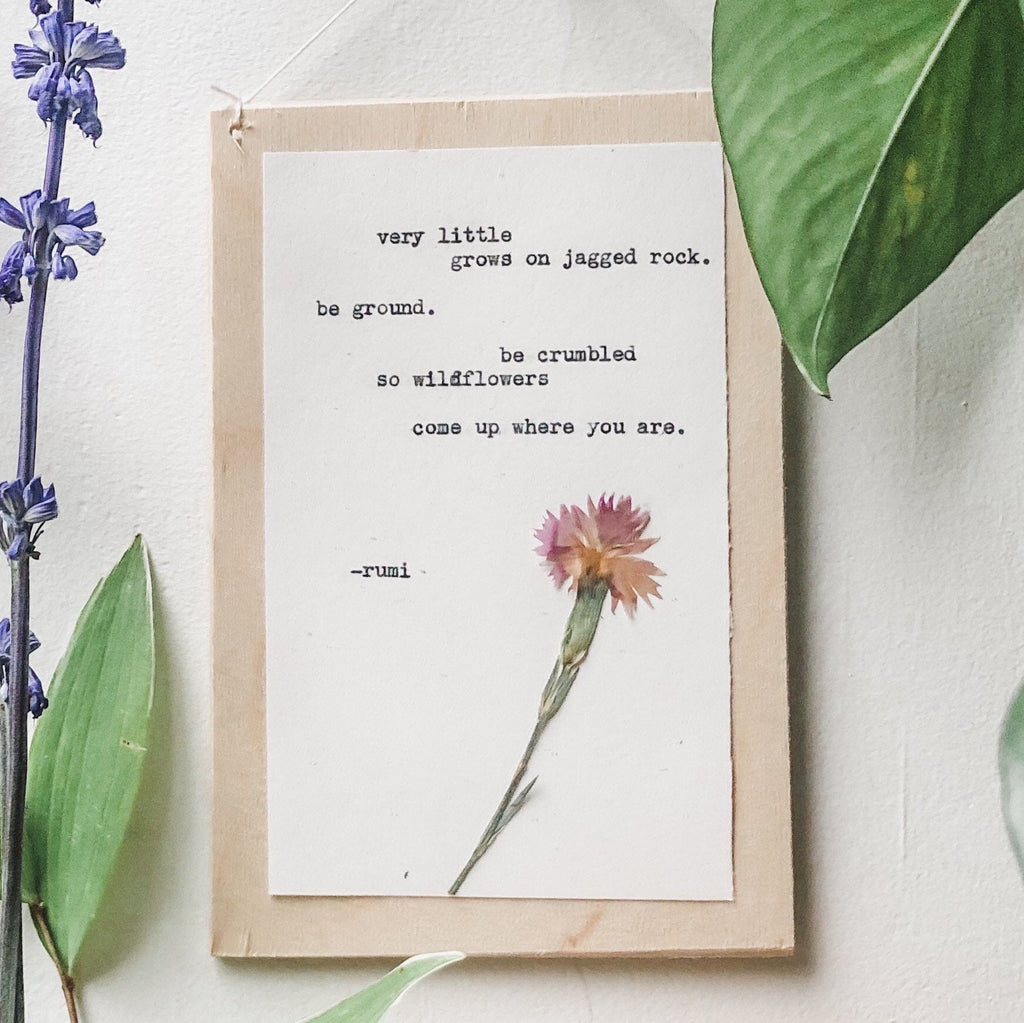 very little
grows on jagged rock.
be ground.
be crumbled
so wildflowers
come up where you are.
-rumi